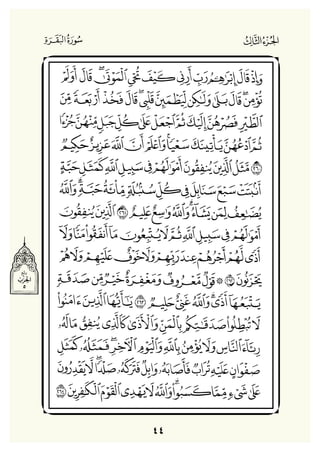 الجُزْءُ الثَّالِثُ
سُورَةُ البَقَرَةِ
وَإِذْ قَالَ إِبْرَٰهِـۧمُ رَبِّ أَرِنِى كَيْفَ تُحْىِ ٱلْمَوْتَىٰ ۖ قَالَ أَوَلَمْ
تُؤْمِن ۖ قَالَ بَلَىٰ وَلَـٰكِن لِّيَطْمَئِنَّ قَلْبِى ۖ قَالَ فَخُذْ أَرْبَعَةً مِّنَ
ٱلطَّيْرِ فَصُرْهُنَّ إِلَيْكَ ثُمَّ ٱجْعَلْ عَلَىٰ كُلِّ جَبَلٍ مِّنْهُنَّ جُزْءًا
ثُمَّ ٱدْعُهُنَّ يَأْتِينَكَ سَعْيًا ۚ وَٱعْلَمْ أَنَّ ٱللَّهَ عَزِيزٌ حَكِيمٌ
٢٦٠ مَّثَلُ ٱلَّذِينَ يُنفِقُونَ أَمْوَٰلَهُمْ فِى سَبِيلِ ٱللَّهِ كَمَثَلِ حَبَّةٍ
أَنۢبَتَتْ سَبْعَ سَنَابِلَ فِى كُلِّ سُنۢبُلَةٍ مِّا۟ئَةُ حَبَّةٍ ۗ وَٱللَّهُ
يُضَـٰعِفُ لِمَن يَشَآءُ ۗ وَٱللَّهُ وَٰسِعٌ عَلِيمٌ ٢٦١ ٱلَّذِينَ يُنفِقُونَ
أَمْوَٰلَهُمْ فِى سَبِيلِ ٱللَّهِ ثُمَّ لَا يُتْبِعُونَ مَآ أَنفَقُوا۟ مَنًّا وَلَآ
أَذًى ۙ لَّهُمْ أَجْرُهُمْ عِندَ رَبِّهِمْ وَلَا خَوْفٌ عَلَيْهِمْ وَلَا هُمْ
يَحْزَنُونَ ٢٦٢ ۞ قَوْلٌ مَّعْرُوفٌ وَمَغْفِرَةٌ خَيْرٌ مِّن صَدَقَةٍ
يَتْبَعُهَآ أَذًى ۗ وَٱللَّهُ غَنِىٌّ حَلِيمٌ ٢٦٣ يَـٰٓأَيُّهَا ٱلَّذِينَ ءَامَنُوا۟
لَا تُبْطِلُوا۟ صَدَقَـٰتِكُم بِٱلْمَنِّ وَٱلْأَذَىٰ كَٱلَّذِى يُنفِقُ مَالَهُۥ
رِئَآءَ ٱلنَّاسِ وَلَا يُؤْمِنُ بِٱللَّهِ وَٱلْيَوْمِ ٱلْـَٔاخِرِ ۖ فَمَثَلُهُۥ كَمَثَلِ
صَفْوَانٍ عَلَيْهِ تُرَابٌ فَأَصَابَهُۥ وَابِلٌ فَتَرَكَهُۥ صَلْدًا ۖ لَّا يَقْدِرُونَ
عَلَىٰ شَىْءٍ مِّمَّا كَسَبُوا۟ ۗ وَٱللَّهُ لَا يَهْدِى ٱلْقَوْمَ ٱلْكَـٰفِرِينَ ٢٦٤
٤٤